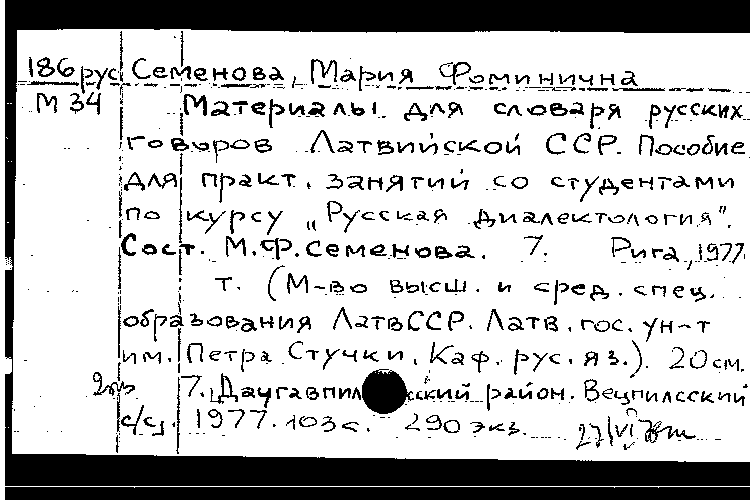 186рус Семенова, Мария Фоминична
М 34 Материалы для словаря русских
говоров Латвийской ССР. Пособие
для практ. занятий со студентами
по курсу „Русская диалектология".
Сост. М.Ф.Семенова. 7. Рига, 1977.
т. (М-во высш. и сред. спец.
образования ЛатвССР. Латв. гос. ун-т
им. Петра Стучки. Каф. рус. яз.). 20 см.
7. Даугавпил сский район. Вецпилсский
с/с. 1977. 103 с. 290 экз.